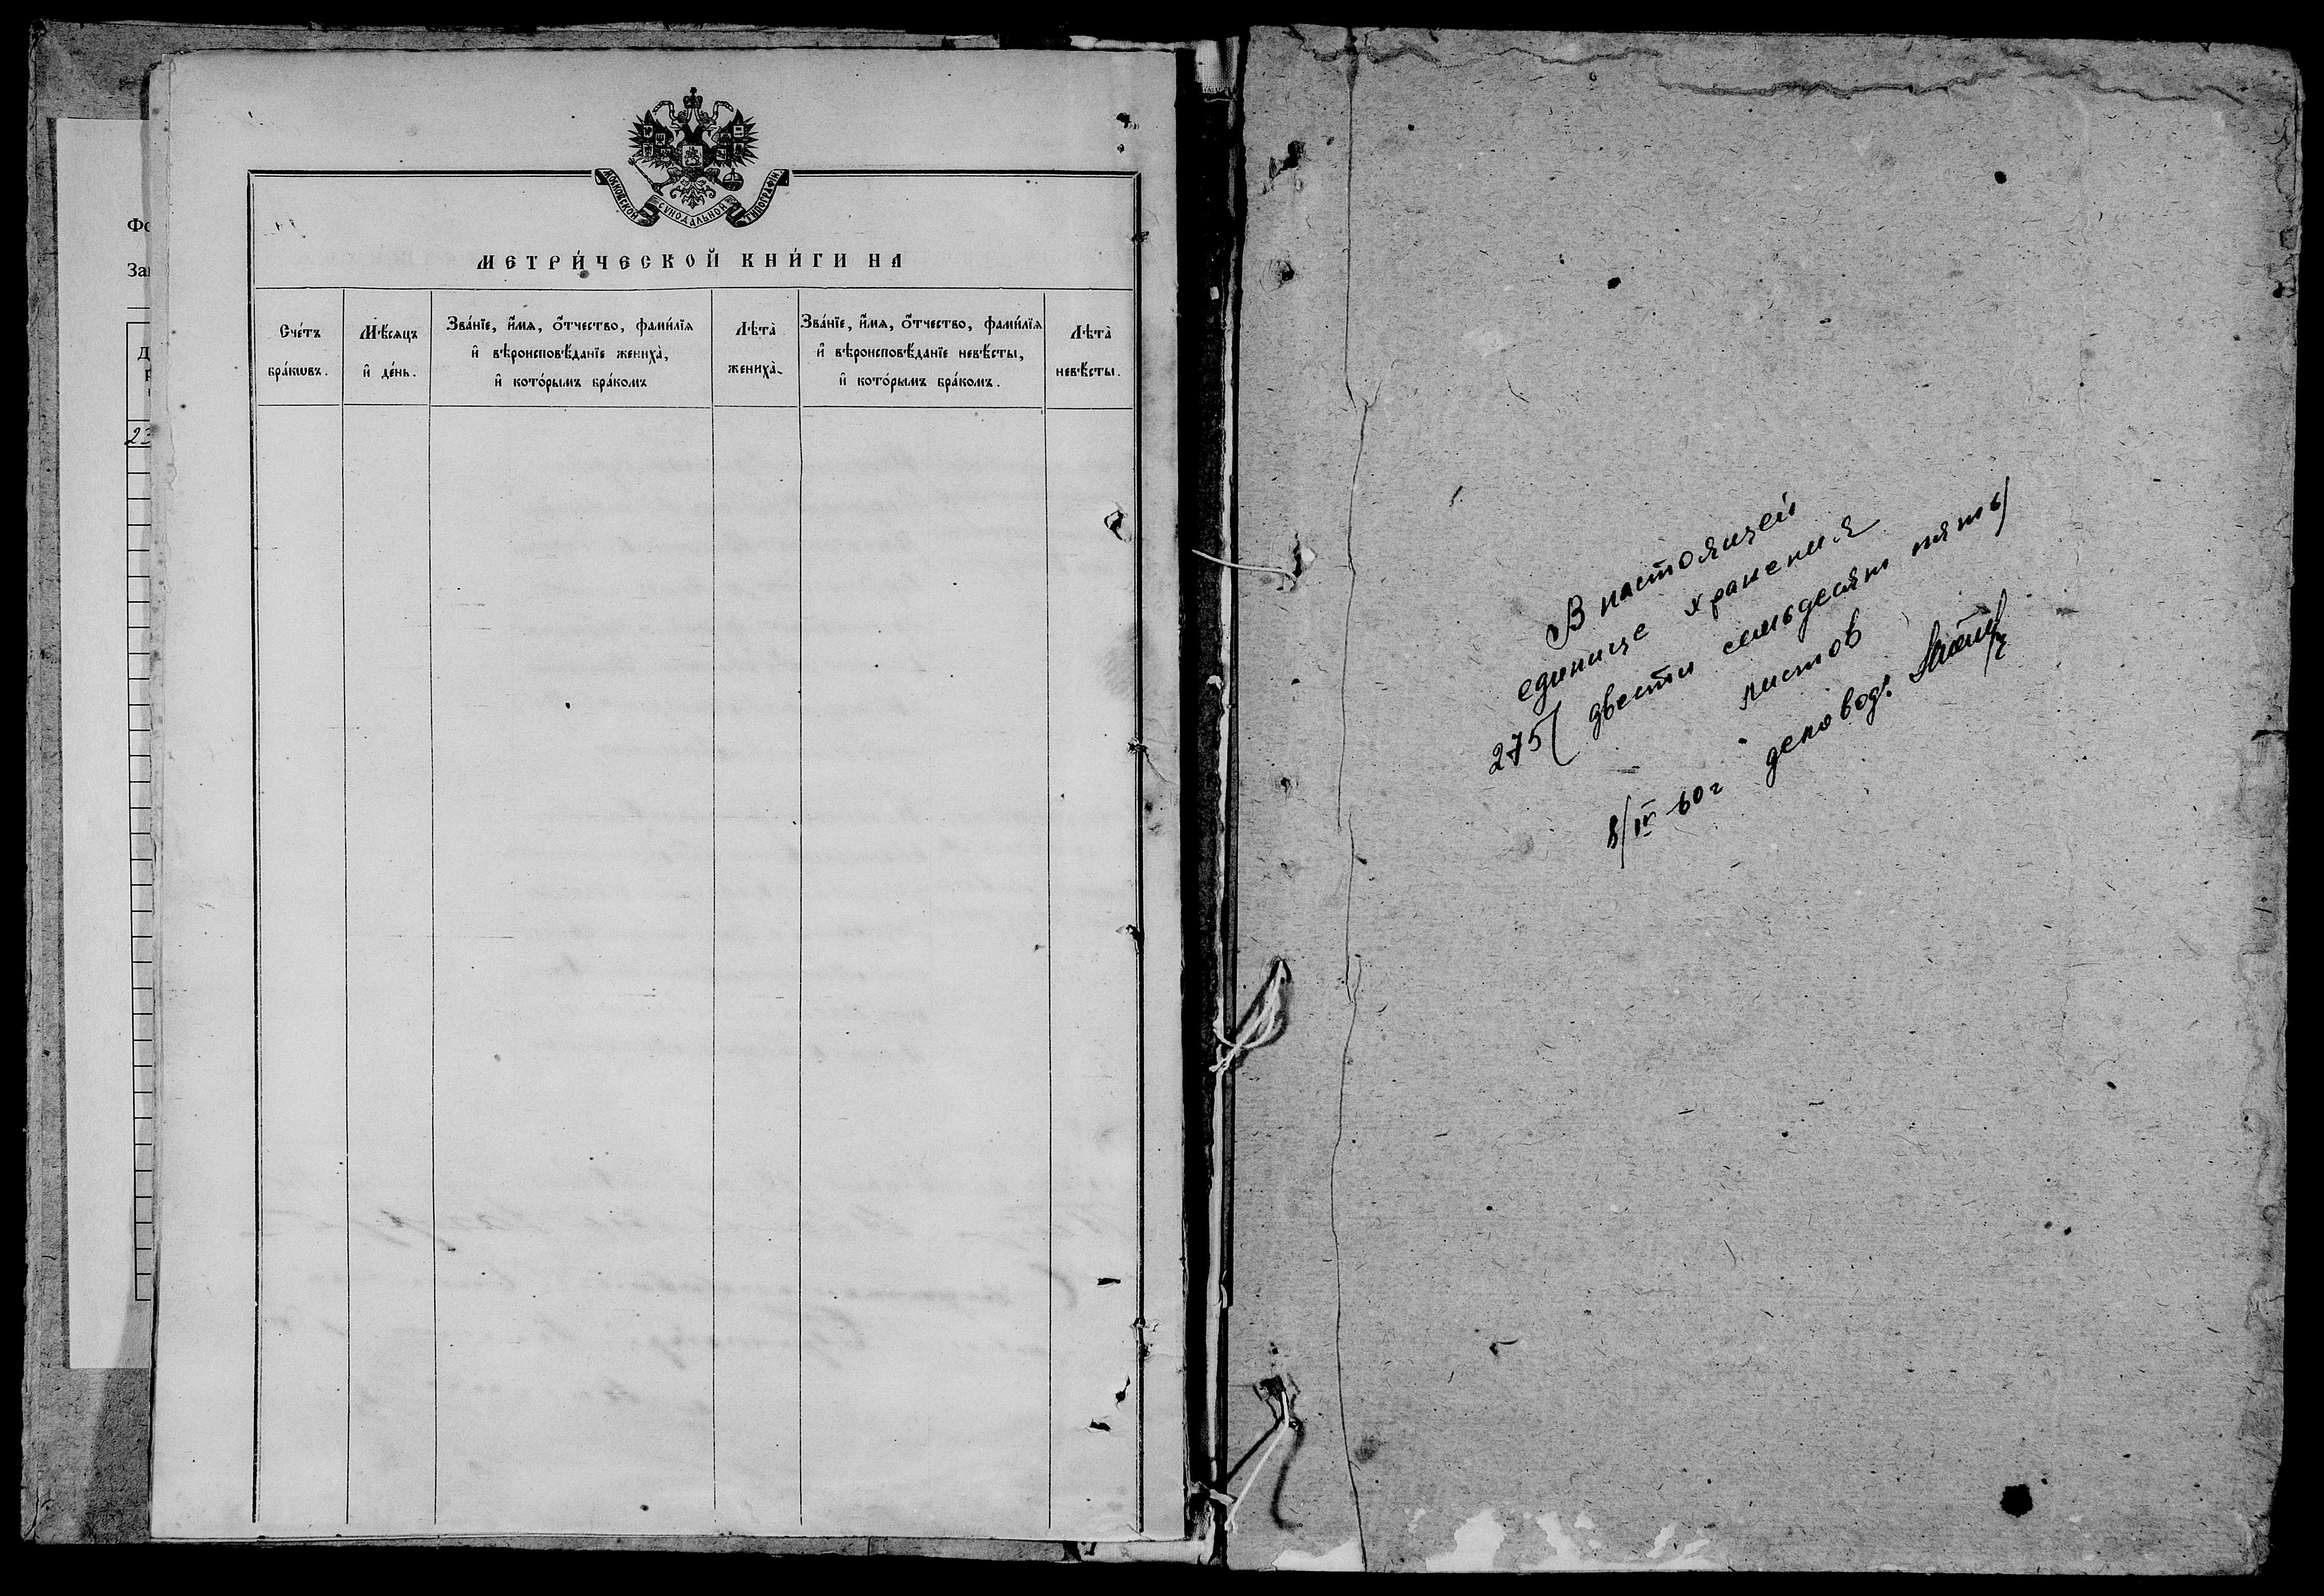 Фо
За
23
МОСКОВСКОЙ СѴНОДАЛЬНОЙ ТИПОГРАФІИ
МЕТРИ́ЧЕСКОЙ КНИ́ГИ НА
Сче́тъ
бра́кωвъ.
Мѣ́сяцъ
и҆ де́нь.
Зва́нїе, и҆́мѧ, о҆́тчество, фами́лїѧ
и҆ вѣроисповѣ́данїе жениха̀,
и҆ кото́рымъ бра́комъ
Лѣта̀
жениха̀.
Зва́нїе, и҆́мѧ, о҆́тчество, фами́лїѧ
и҆ вѣроисповѣ́данїе невѣ́сты,
и҆ кото́рымъ бра́комъ.
Лѣта̀
невѣ́сты.
В настоящей
единице хранения
275 (двести семьдесят пять)
листов
8/IV-60г деловод.